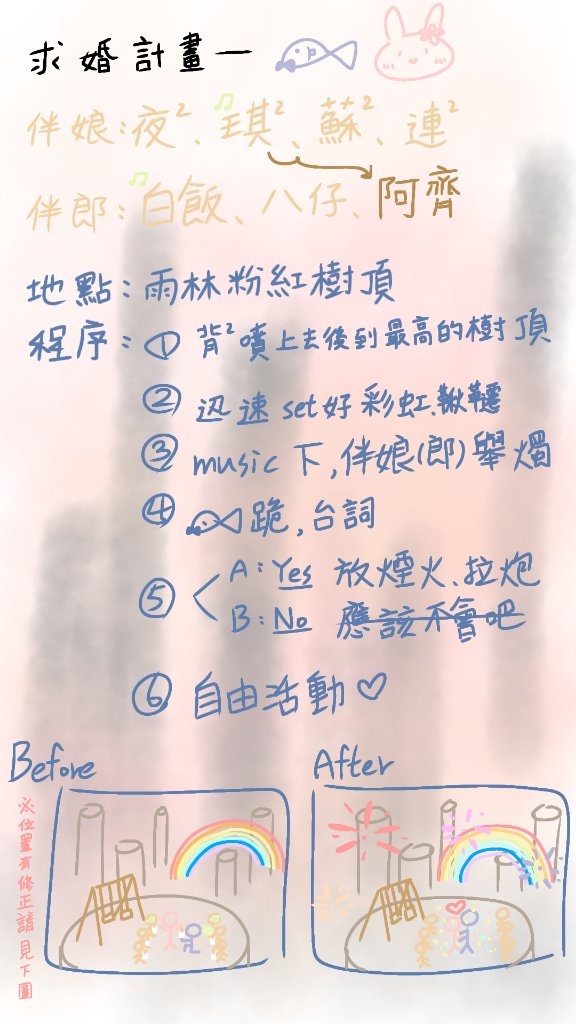 求婚計畫一
伴娘：夜²、琪²、蘇²、連²
伴郎：白飯、八仔、阿齊
地點：雨林粉紅樹頂
程序：① 背²噴上去後到最高的樹頂
② 迅速 set好彩虹鞦韆
③ music 下，伴娘(郎)舉燭
④ 跪，台詞
⑤ A：Yes 放煙火、拉炮
B：No 應該不會吧
⑥ 自由活動♡
Before
After
※位置有修正請見下圖